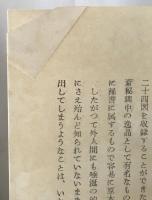 二十四図を収録することができな
蒼秘興中の逸品として有名なもの
に稀書に属するもので容易に原本
したがつて外人間にも唾涎の的
にさえ殆んど知られていないまま
出してしまうようなことは、い